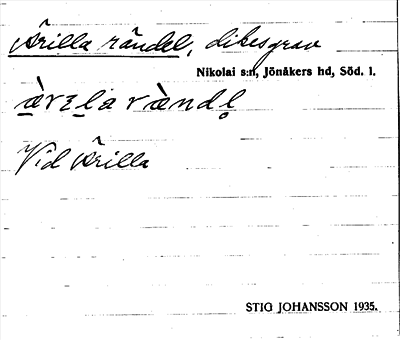 Ärilla rändel, dikesgrav
Nikolai s:n, Jönåkers hd, Söd. l.
Vid Ärilla
STIG JOHANSSON 1935.